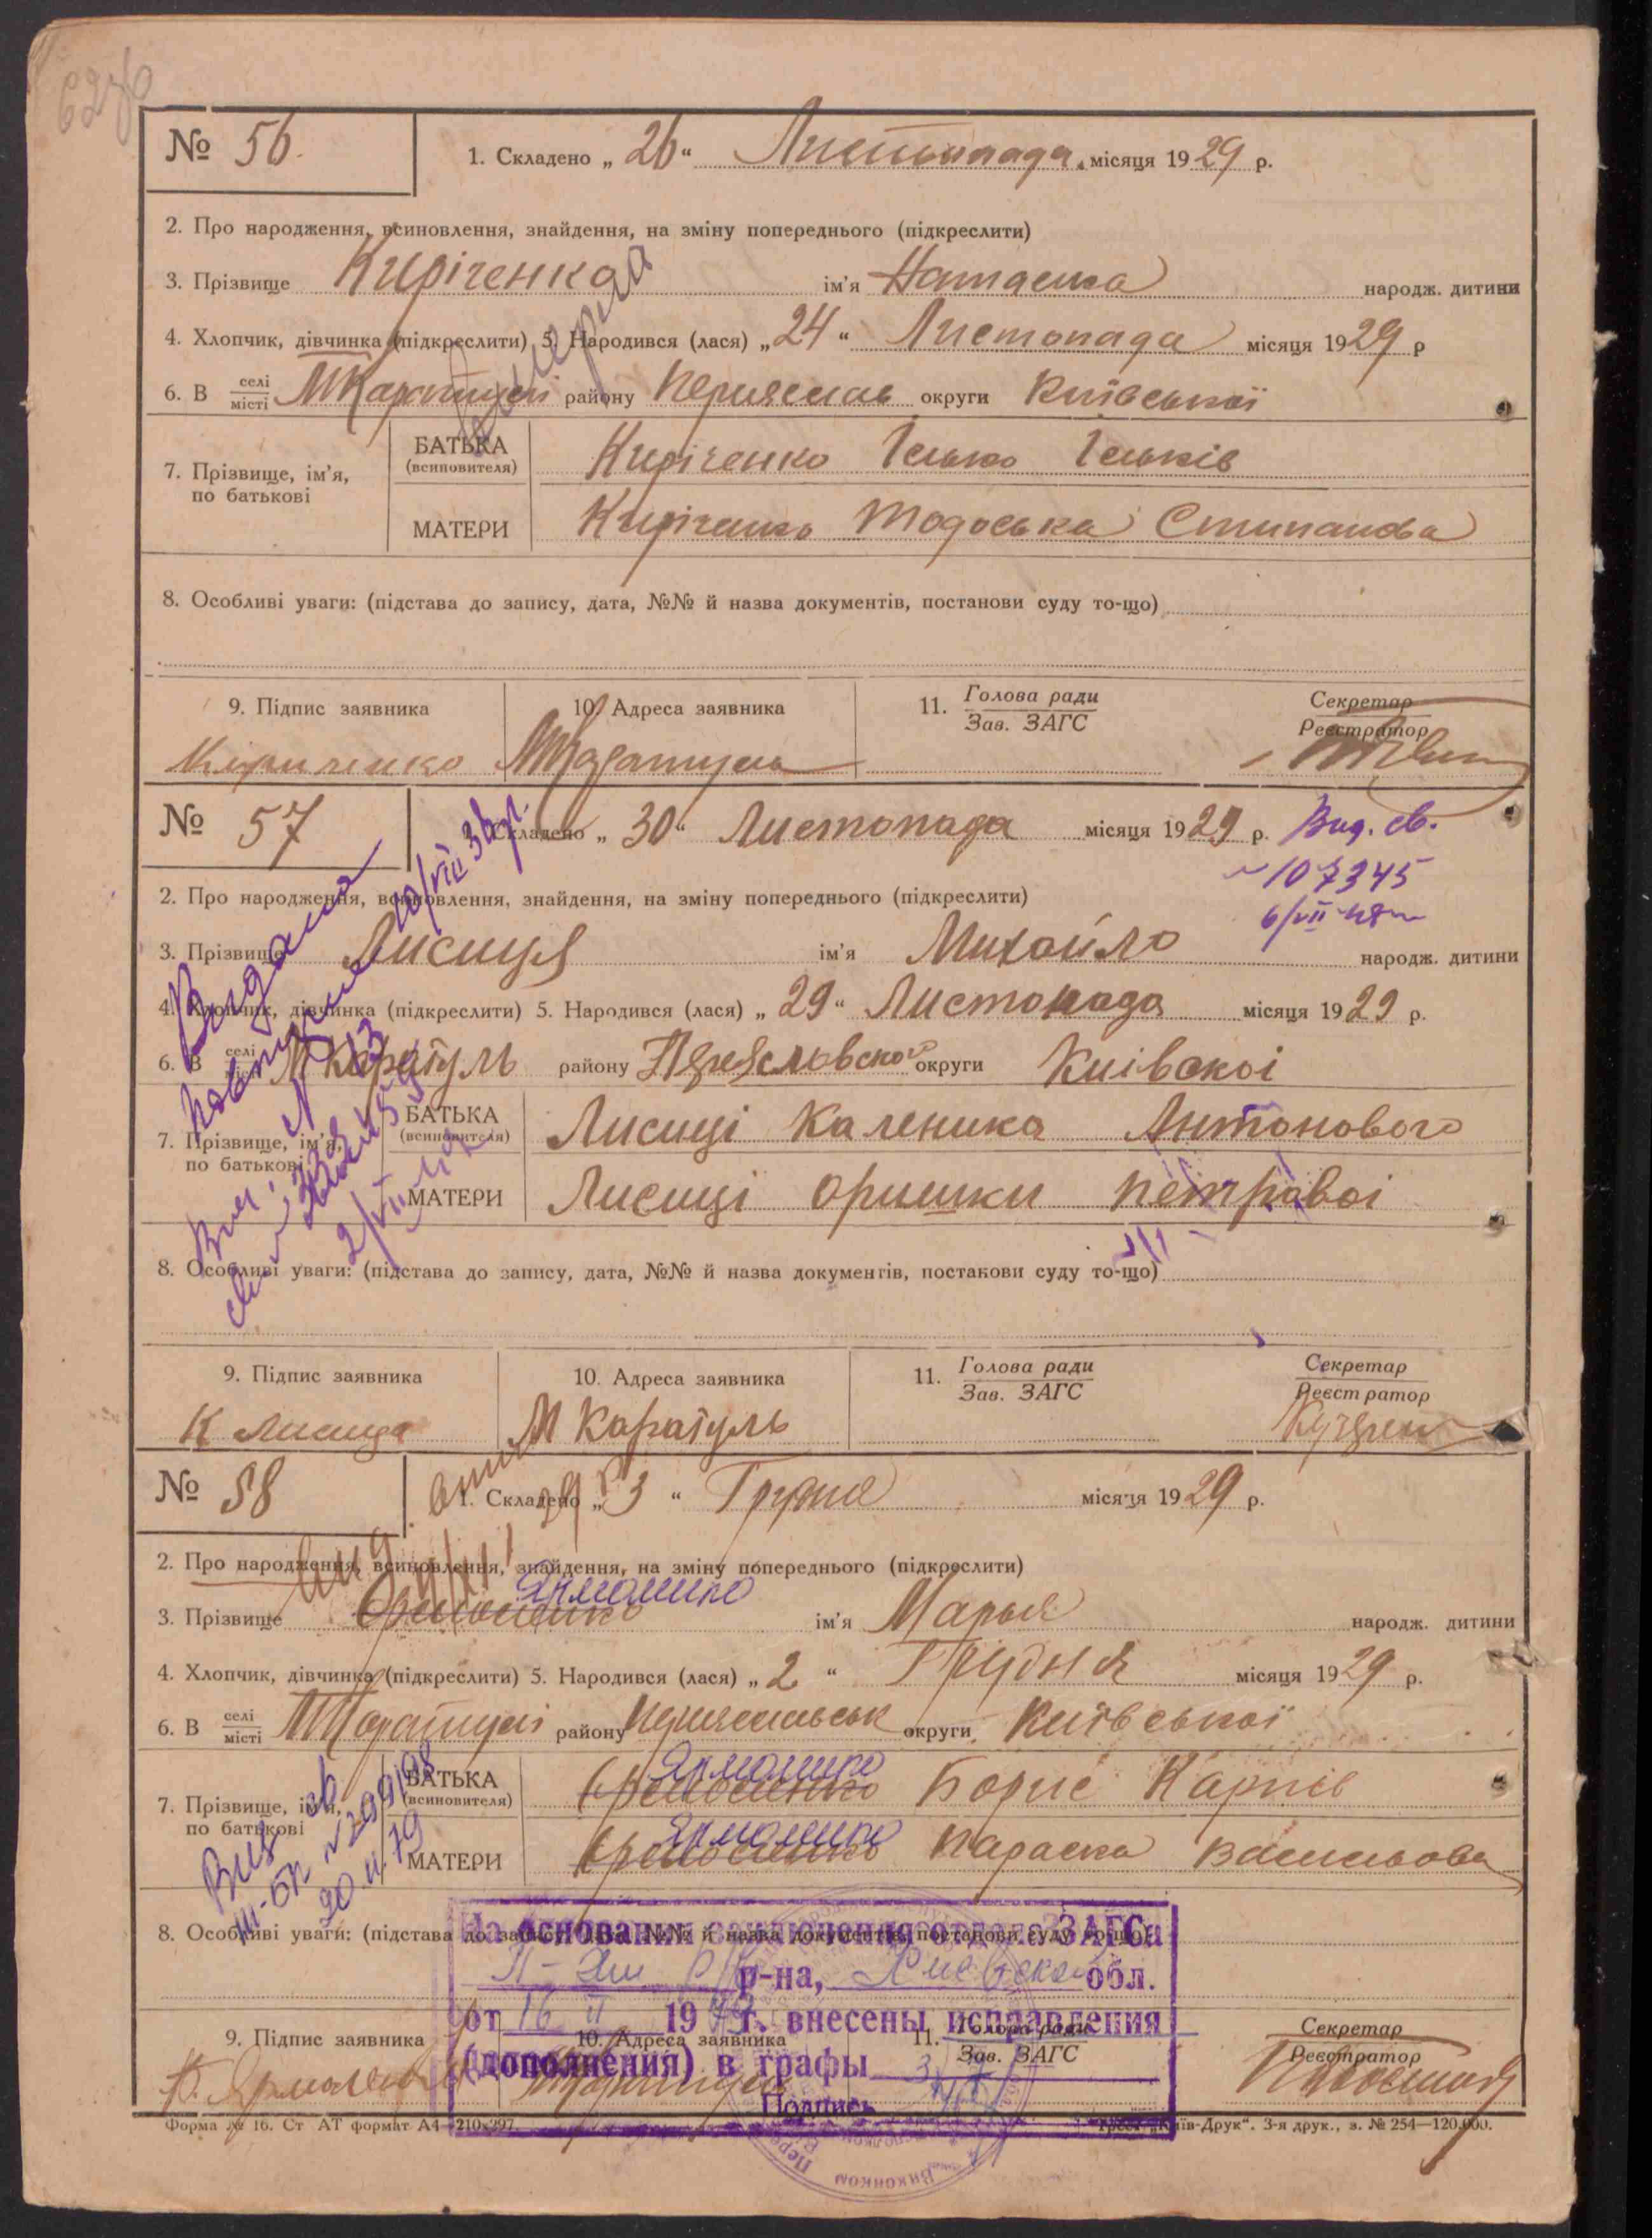 № 56.
1. Складено „ 26 “ Листопада місяця 1929 р.
2. Про народження, всиновлення, знайдення, на зміну попереднього (підкреслити)
3. Прізвище Киріченко ім'я Наташка народж. дитини
Умерла
4. Хлопчик, дівчинка (підкреслити) 5. Народився (лася) „ 24 “ Листопада місяця 1929 р
6. В селі місті МКаратулі району Переяслав округи Київської
7. Прізвище, ім'я, по батькові
БАТЬКА (всиновителя) Киріченко Ісько Іськів
МАТЕРИ Киріченко Тодоська Степанова
8. Особливі уваги: (підстава до запису, дата, №№ й назва документів, постанови суду то-що)
9. Підпис заявника 10. Адреса заявника 11. Голова ради Зав. ЗАГС Секретар Реєстратор
Кириченко МКаратуль
№ 57
1. Складено „ 30 “ Листопада місяця 1929 р. Вид. св.
107345
6/VII
2. Про народження, всиновлення, знайдення, на зміну попереднього (підкреслити)
3. Прізвище Лисиця ім'я Михайло народж. дитини
4. Хлопчик, дівчинка (підкреслити) 5. Народився (лася) „ 29 “ Листопада місяця 1929 р.
6. В селі місті М Каратуль району Переяславского округи Киівскоі
Видана
10/VIII 36 р.
7. Прізвище, ім'я, по батькові
БАТЬКА (всиновителя) Лисиці Каленика Антонового
МАТЕРИ Лисиці Оришки Петровоі
8. Особливі уваги: (підстава до запису, дата, №№ й назва документів, постанови суду то-що)
9. Підпис заявника 10. Адреса заявника 11. Голова ради Зав. ЗАГС Секретар Реєстратор
К Лисиця М Каратуль
№ 58
1. Складено „ 3 “ Грудня місяця 1929 р.
2. Про народження, всиновлення, знайдення, на зміну попереднього (підкреслити)
Ярмошенко
3. Прізвище ім'я Марья народж. дитини
4. Хлопчик, дівчинка (підкреслити) 5. Народився (лася) „ 2 “ Грудня місяця 1929 р.
6. В селі місті МКаратулі району Переяславськ округи Київської
7. Прізвище, ім'я, по батькові
БАТЬКА (всиновителя) Ярмошенко Борис Карпів
МАТЕРИ Ярмошенко Параска Васильова
20.II.79
8. Особливі уваги: (підстава до запису, дата, №№ й назва документів, постанови суду то-що)
На основании заключения отдела ЗАГСа
р-на, Киевской обл.
от 16 II 1979 г. внесены исправления
(дополнения) в графы 3, 7
Подпись
9. Підпис заявника 10. Адреса заявника 11. Голова ради Зав. ЗАГС Секретар Реєстратор
Форма № 16. Ст АТ формат А4—210х297. Трест „Київ-Друк“. 3-я друк., з. № 254—120.000.